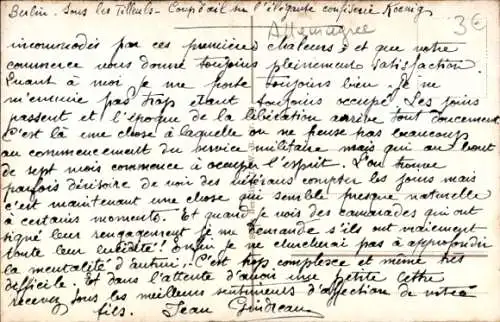 Berlin. Sous les Tilleuls - Coup d'œil sur l'élégante confiserie Koenig
Allemagne
3€
incommodés par ces premières chaleurs et que votre
commerce vous donne toujours pleinement satisfaction.
Quant à moi je me porte toujours bien. Je ne
m'ennuie pas trop étant toujours occupé. Les jours
passent et l'époque de la libération arrive tout doucement
C'est là une chose à laquelle on ne pense pas beaucoup
au commencement du service militaire mais qui au bout
de sept mois commence à occuper l'esprit. L'on trouve
parfois dérisoire de voir des vétérans compter les jours mais
c'est maintenant une chose qui semble presque naturelle
à certains moments. Et quand je vois des camarades qui ont
signé leur rengagement je me demande s'ils ont vraiment
toute leur lucidité! Enfin je ne chercherai pas à approfondir
la mentalité d'autrui. C'est trop complexe et même très
difficile. Et dans l'attente d'avoir une petite lettre
recevez tous les meilleurs sentiments d'affection de votre
fils. Jean